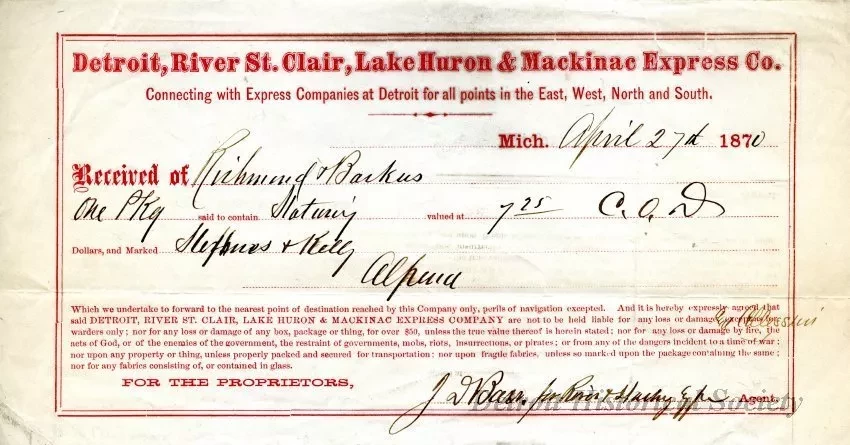 Detroit, River St. Clair, Lake Huron & Mackinac Express Co.
Connecting with Express Companies at Detroit for all points in the East, West, North and South.
Mich. April 27th 1870
Received of Richmond & Backus
One Pkg said to contain valued at 7 25 C. O. D
Dollars, and Marked & Kelly
Alpena
Which we undertake to forward to the nearest point of destination reached by this Company only, perils of navigation excepted. And it is hereby expressly agreed that
said DETROIT, RIVER ST. CLAIR, LAKE HURON & MACKINAC EXPRESS COMPANY are not to be held liable for any loss or damage, except as for-
warders only; nor for any loss or damage of any box, package or thing, for over $50, unless the true value thereof is herein stated; nor for any loss or damage by fire, the
acts of God, or of the enemies of the government, the restraint of governments, mobs, riots, insurrections, or pirates; or from any of the dangers incident to a time of war;
nor upon any property or thing, unless properly packed and secured for transportation; nor upon fragile fabrics, unless so marked upon the package containing the same;
nor for any fabrics consisting of, or contained in glass.
FOR THE PROPRIETORS,
J D Barr. for Agent.
Detroit Historical Society